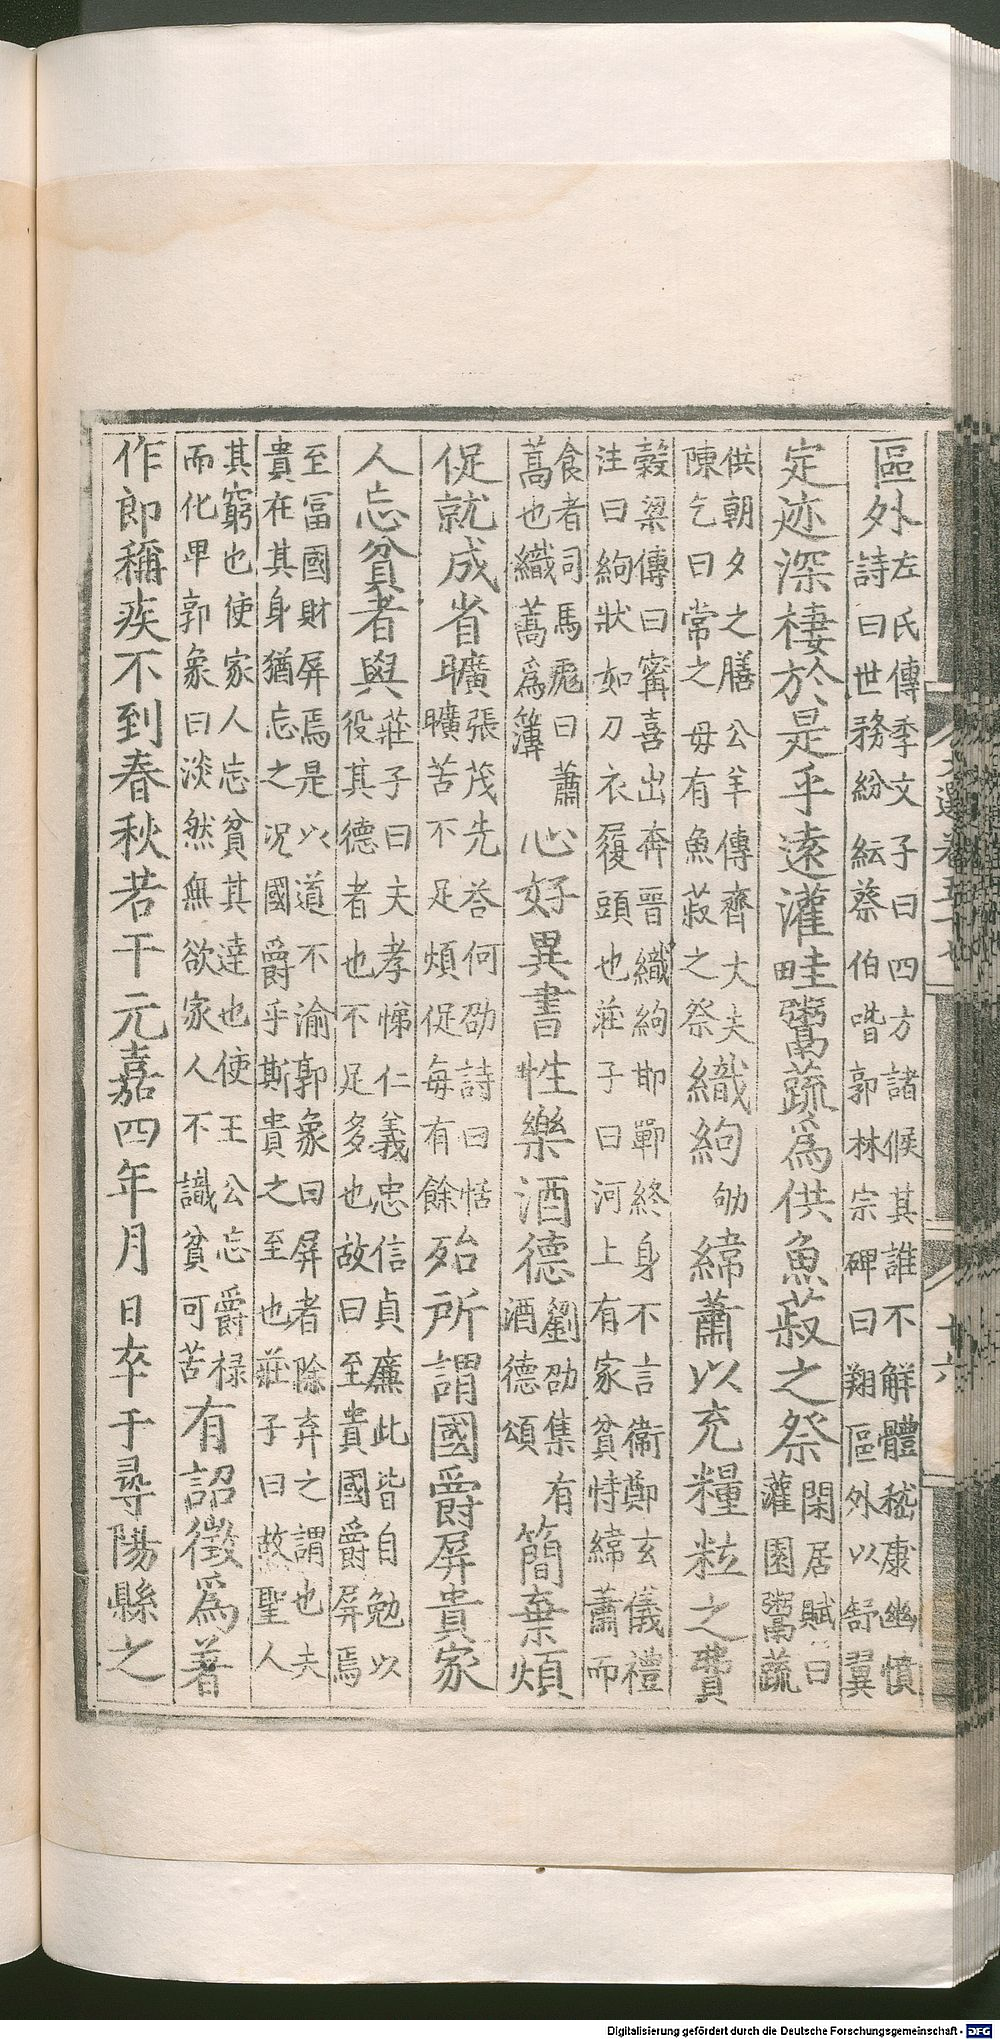 區外左氏傳季文子曰四方諸侯其誰不解體嵇康幽憤
詩曰世務紛紜蔡伯喈郭林宗碑曰翔區外以舒翼
定迹深棲於是乎遠灌畦鬻蔬爲供魚菽之祭閑居賦曰
灌園鬻蔬
供朝夕之膳公羊傳齊大夫
陳乞曰常之毋有魚菽之祭織絇劬緯蕭以充糧粒之費
穀梁傳曰甯喜出奔晉織絇邯鄲終身不言衞鄭玄儀禮
注曰絇狀如刀衣履頭也莊子曰河上有家貧恃緯蕭而
食者司馬彪曰蕭
蒿也織蒿爲簿心好異書性樂酒德劉劭集有
酒德頌簡棄煩
促就成省曠張茂先荅何劭詩曰恬
曠苦不足煩促每有餘殆所謂國爵屏貴家
人忘貧者與莊子曰夫孝悌仁義忠信貞廉此皆自勉以
役其德者也不足多也故曰至貴國爵屏焉
至富國財屏焉是以道不渝郭象曰屏者除弃之謂也夫
貴在其身猶忘之況國爵乎斯貴之至也莊子曰故聖人
其窮也使家人忘貧其達也使王公忘爵祿
而化卑郭象曰淡然無欲家人不識貧可苦有詔徵爲著
作郎稱疾不到春秋若干元嘉四年月日卒于尋陽縣之
文選卷五十七
十六
Digitalisierung gefördert durch die Deutsche Forschungsgemeinschaft - DFG